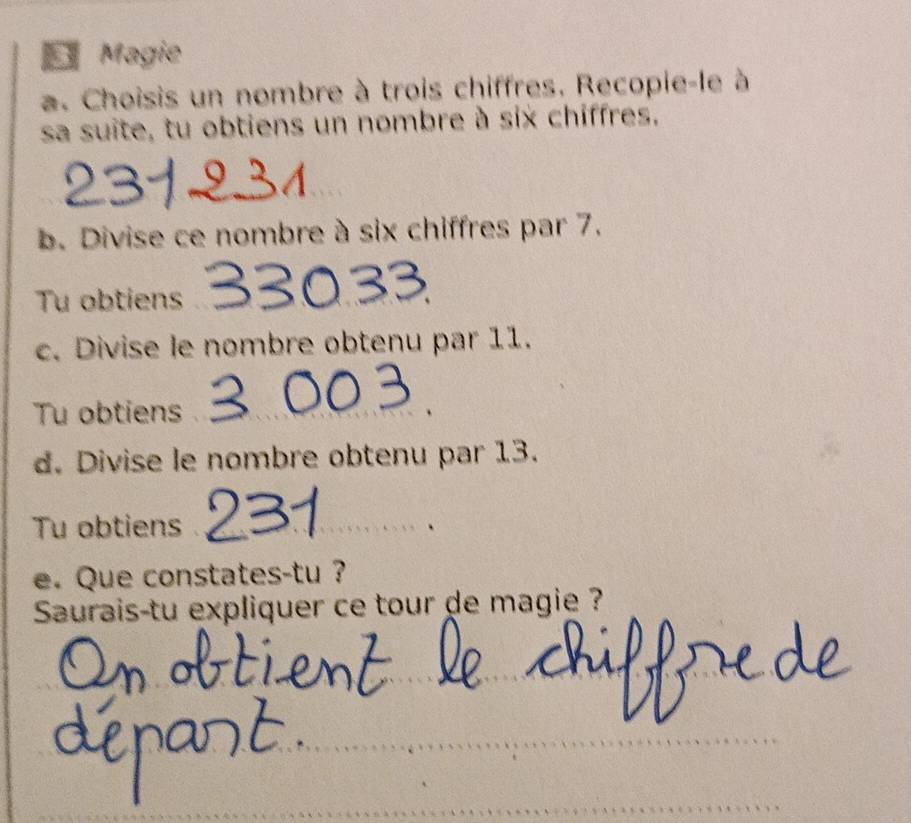 3 Magie
a. Choisis un nombre à trois chiffres. Recopie-le à
sa suite, tu obtiens un nombre à six chiffres.
231 231
b. Divise ce nombre à six chiffres par 7.
Tu obtiens 33033.
c. Divise le nombre obtenu par 11.
Tu obtiens 3 003.
d. Divise le nombre obtenu par 13.
Tu obtiens 231.
e. Que constates-tu ?
Saurais-tu expliquer ce tour de magie ?
On obtient le chiffre de
départ.